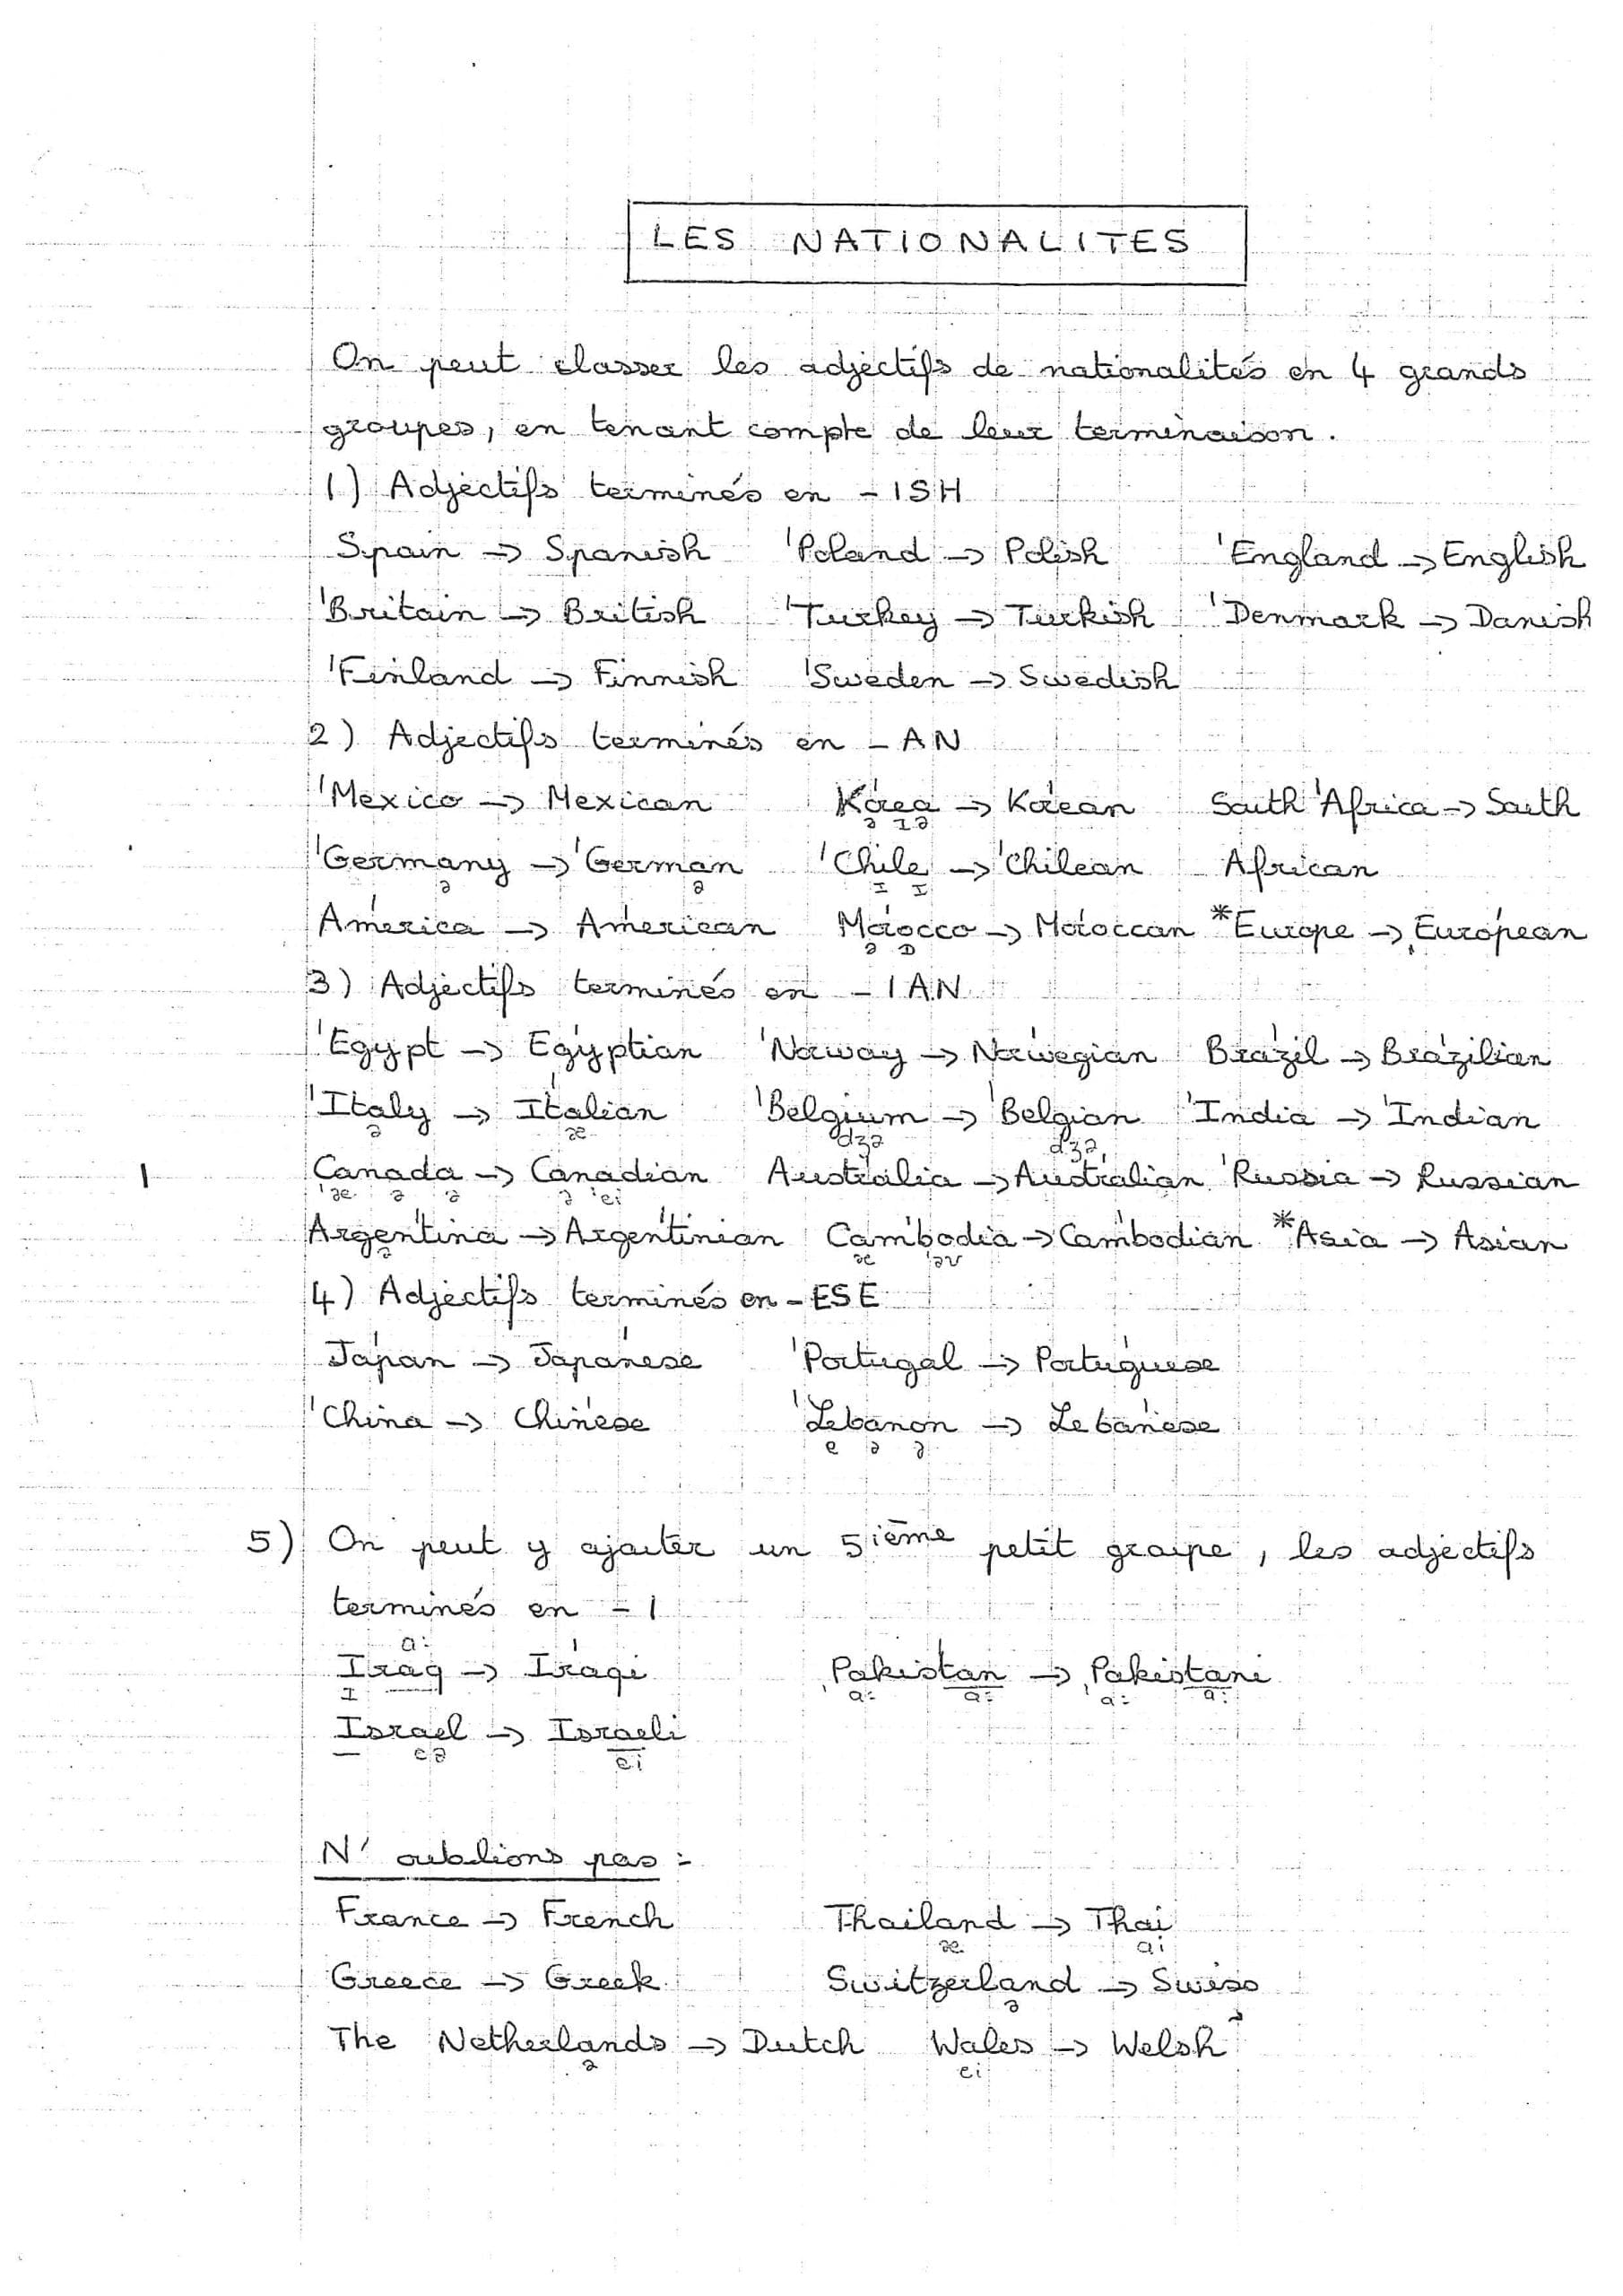 LES NATIONALITES
On peut classer les adjectifs de nationalités en 4 grands
groupes, en tenant compte de leur terminaison.
1) Adjectifs terminés en -ISH
Spain → Spanish 'Poland → Polish 'England → English
'Britain → British 'Turkey → Turkish 'Denmark → Danish
'Finland → Finnish 'Sweden → Swedish
2) Adjectifs terminés en -AN
'Mexico → Mexican Ko'rea → Ko'rean South 'Africa → South
ə ɪə
'Germany → 'German 'Chile → 'Chilean African
ə ə ɪ ɪ
A'merica → A'merican Mo'rocco → Mo'roccan *'Europe → ,Euro'pean
ə ɒ
3) Adjectifs terminés en -IAN
'Egypt → E'gyptian 'Norway → Nor'wegian Bra'zil → Bra'zilian
'Italy → I'talian 'Belgium → 'Belgian 'India → 'Indian
ə æ dʒə dʒə
Canada → Canadian Aus'tralia → Aus'tralian 'Russia → Russian
'æ ə ə ə 'ei
Argen'tina → Argen'tinian Cam'bodia → Cam'bodian *'Asia → Asian
ə æ 'əʊ
4) Adjectifs terminés en -ESE
Ja'pan → Japa'nese 'Portugal → Portu'guese
'China → Chi'nese 'Lebanon → Leba'nese
e ə ə
5) On peut y ajouter un 5ième petit groupe, les adjectifs
terminés en -I
ɑ:
Iraq → I'raqi Pakistan → Pakistani
ɪ ,ɑ: ɑ: ,ɑ: ɑ:
Israel → Israeli
eə ei
N'oublions pas :
France → French Thailand → Thai
æ ai
Greece → Greek Switzerland → Swiss
ə
The Netherlands → Dutch Wales → Welsh
ə ei